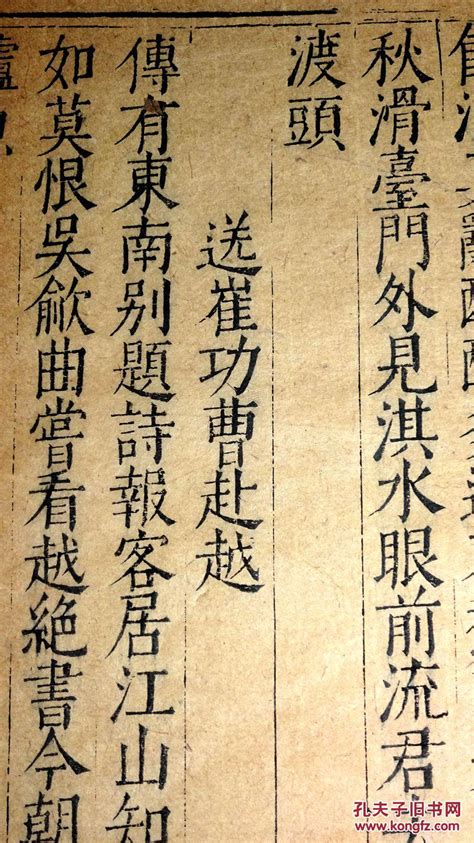 秋滑臺門外見淇水眼前流君
渡頭
送崔功曹赴越
傳有東南别題詩報客居江山知
如莫恨吳歈曲嘗看越絕書今朝
孔夫子旧书网
www.kongfz.com